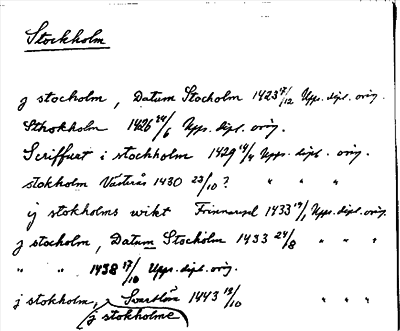 Stockholm
j stocholm, Datum Stocholm 1423 17/12 Upps. dipl. orig.
Sthokholm 1426 24/6 Upps. dipl. orig.
Scriffuit i stockholm 1429 14/4 Upps. dipl. orig.
stokholm Västerås 1430 23/10? " " "
ij stokholms wikt 1433 19/1 Upps. dipl. orig.
j stocholm, Datum Stocholm 1433 24/8 " " "
" " 1438 17/10 Upps. dipl. orig.
j stokholm, Svartlöse 1443 13/10 " " "
j stokholme